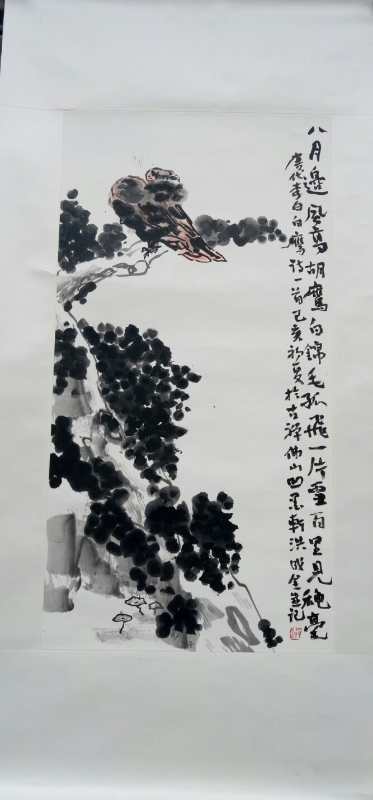 八月邊風高胡鷹白錦毛孤飛一片雪百里見秋毫
唐代李白白鷹詩一首己亥初夏於古禪佛山凹墨軒洪